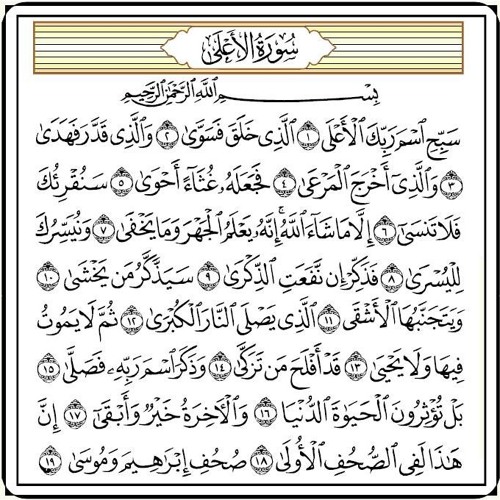 سُورَةُ الأَعْلَى
بِسْمِ اللَّهِ الرَّحْمَٰنِ الرَّحِيمِ
سَبِّحِ اسْمَ رَبِّكَ الْأَعْلَى ١ الَّذِي خَلَقَ فَسَوَّىٰ ٢ وَالَّذِي قَدَّرَ فَهَدَىٰ
٣ وَالَّذِي أَخْرَجَ الْمَرْعَىٰ ٤ فَجَعَلَهُ غُثَاءً أَحْوَىٰ ٥ سَنُقْرِئُكَ
فَلَا تَنسَىٰ ٦ إِلَّا مَا شَاءَ اللَّهُ ۚ إِنَّهُ يَعْلَمُ الْجَهْرَ وَمَا يَخْفَىٰ ٧ وَنُيَسِّرُكَ
لِلْيُسْرَىٰ ٨ فَذَكِّرْ إِن نَّفَعَتِ الذِّكْرَىٰ ٩ سَيَذَّكَّرُ مَن يَخْشَىٰ ١٠
وَيَتَجَنَّبُهَا الْأَشْقَى ١١ الَّذِي يَصْلَى النَّارَ الْكُبْرَىٰ ١٢ ثُمَّ لَا يَمُوتُ
فِيهَا وَلَا يَحْيَىٰ ١٣ قَدْ أَفْلَحَ مَن تَزَكَّىٰ ١٤ وَذَكَرَ اسْمَ رَبِّهِ فَصَلَّىٰ ١٥
بَلْ تُؤْثِرُونَ الْحَيَوٰةَ الدُّنْيَا ١٦ وَالْآخِرَةُ خَيْرٌ وَأَبْقَىٰ ١٧ إِنَّ
هَٰذَا لَفِي الصُّحُفِ الْأُولَىٰ ١٨ صُحُفِ إِبْرَاهِيمَ وَمُوسَىٰ ١٩